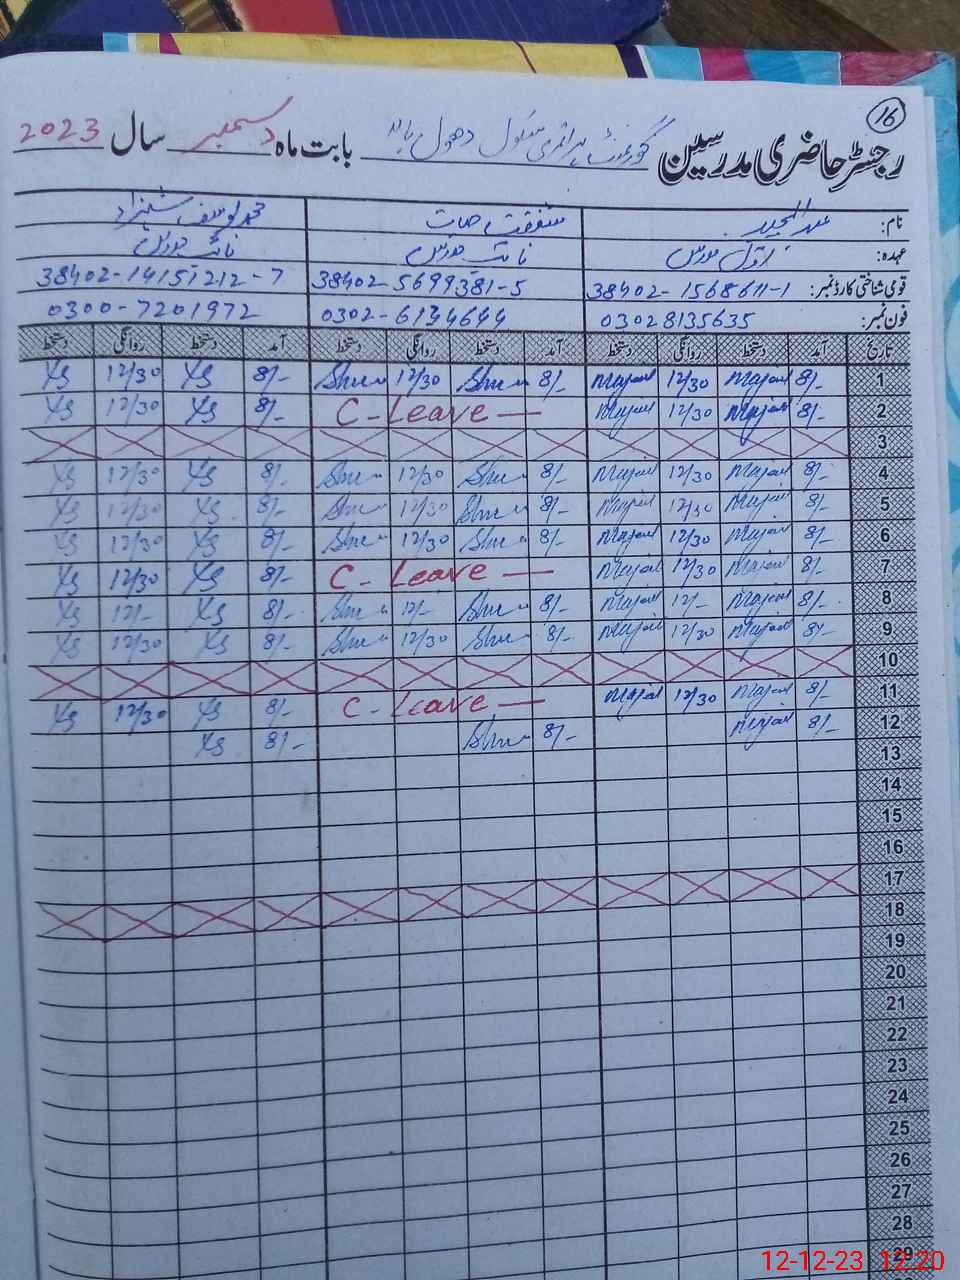 16
رجسٹر حاضری مدرسین گورنمنٹ پرائمری سکول دھول بالا بابت ماہ دسمبر سال 2023
نام: عبدالمجید شفقت حیات محمد یوسف شہزاد
عہدہ: اول مدرس نائب مدرس نائب مدرس
قومی شناختی کارڈ نمبر: 38402-1568611-1 38402-5699381-5 38402-1415212-7
فون نمبر: 03028135635 0302-6134644 0300-7201972
تاریخ آمد دستخط روانگی دستخط آمد دستخط روانگی دستخط آمد دستخط روانگی دستخط
1 8/- Majeed 12/30 Majeed 8/- Shu 12/30 Shu 8/- YS 12/30 YS
2 8/- Majeed 12/30 Majeed C-Leave — 8/- YS 12/30 YS
3
4 8/- Majeed 12/30 Majeed 8/- Shu 12/30 Shu 8/- YS 12/30 YS
5 8/- Majeed 12/30 Majeed 8/- Shu 12/30 Shu 8/- YS 12/30 YS
6 8/- Majeed 12/30 Majeed 8/- Shu 12/30 Shu 8/- YS 12/30 YS
7 8/- Majeed 12/30 Majeed C-Leave — 8/- YS 12/30 YS
8 8/- Majeed 12/- Majeed 8/- Shu 12/- Shu 8/- YS 12/- YS
9 8/- Majeed 12/30 Majeed 8/- Shu 12/30 Shu 8/- YS 12/30 YS
10
11 8/- Majeed 12/30 Majeed C-Leave — 8/- YS 12/30 YS
12 8/- Majeed 8/- Shu 8/- YS
13
14
15
16
17
18
19
20
21
22
23
24
25
26
27
28
29
12-12-23 12:20